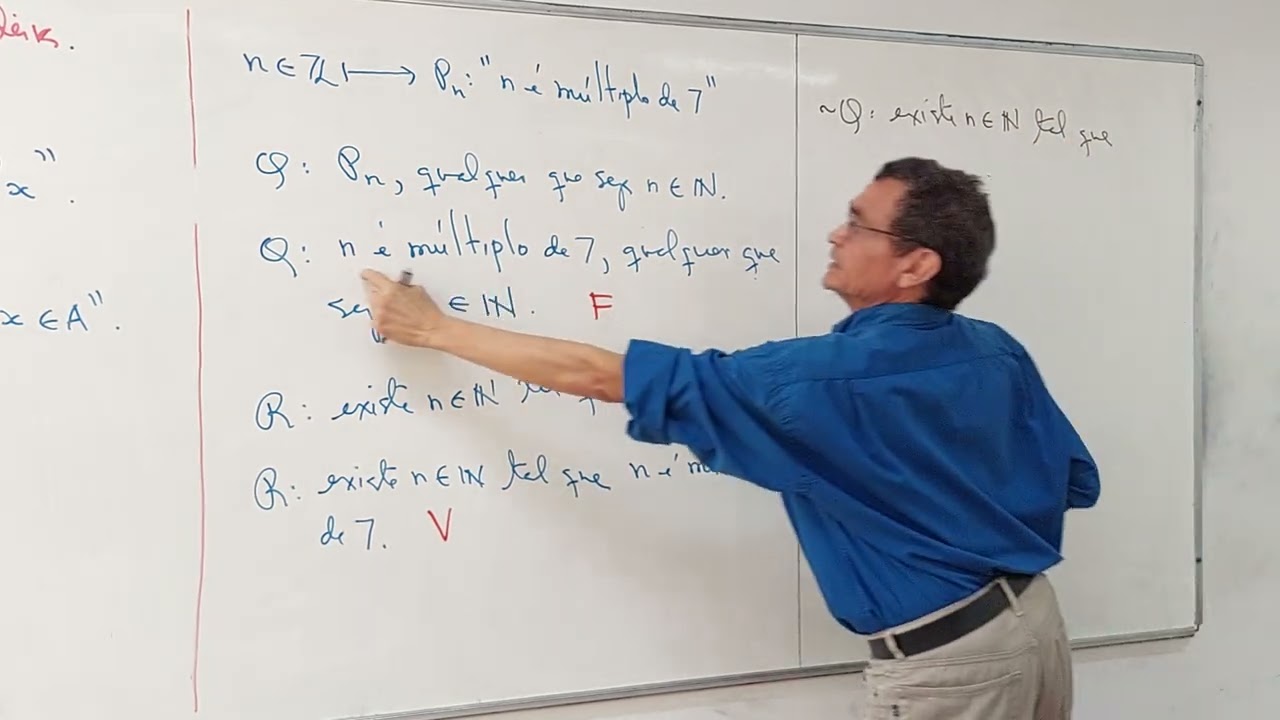 x".
x ∈ A".
n ∈ ℤ ⟼ Pn: "n é múltiplo de 7"
Q: Pn, qualquer que seja n ∈ ℕ.
Q: n é múltiplo de 7, qualquer que
∈ ℕ. F
R: existe n ∈ ℕ tal
R: existe n ∈ ℕ tal que n é
de 7. V
~Q: existe n ∈ ℕ tal que